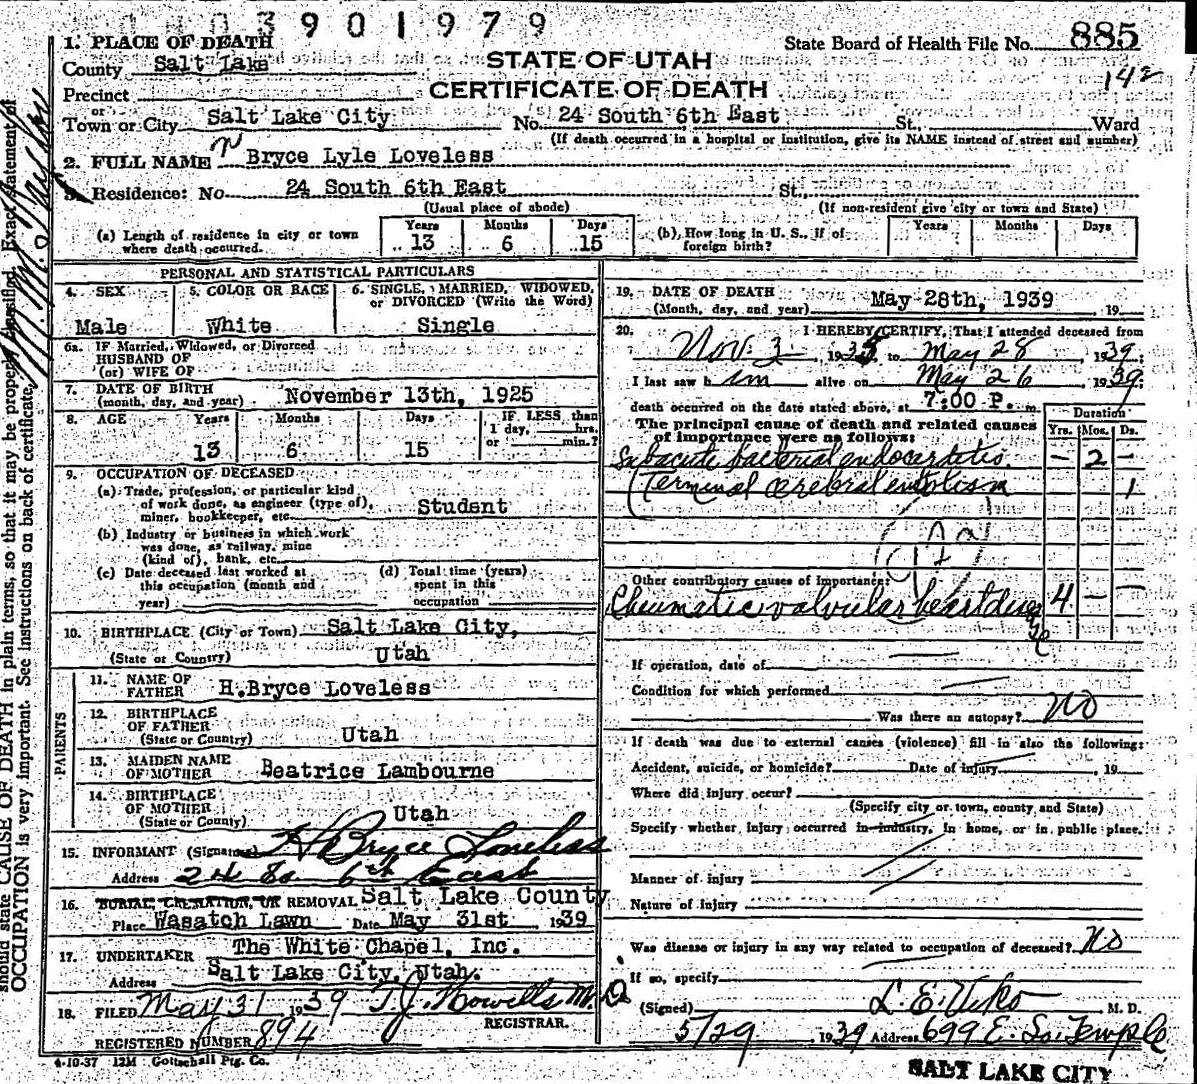 03901979
State Board of Health File No. 885
142
STATE OF UTAH
CERTIFICATE OF DEATH
1. PLACE OF DEATH
County Salt Lake
Precinct
or
Town or City Salt Lake City No. 24 South 6th East St. Ward
(If death occurred in a hospital or institution, give its NAME instead of street and number)
2. FULL NAME Bryce Lyle Loveless
3. Residence: No. 24 South 6th East St.
(Usual place of abode) (If non-resident give city or town and State)
(a) Length of residence in city or town where death occurred. Years 13 Months 6 Days 15
(b) How long in U. S., if of foreign birth? Years Months Days
PERSONAL AND STATISTICAL PARTICULARS
4. SEX Male
5. COLOR OR RACE White
6. SINGLE, MARRIED, WIDOWED, or DIVORCED (Write the Word) Single
6a. IF Married, Widowed, or Divorced
HUSBAND OF
(or) WIFE OF
7. DATE OF BIRTH
(month, day, and year) November 13th, 1925
8. AGE Years 13 Months 6 Days 15 IF LESS than 1 day, hrs. or min.?
9. OCCUPATION OF DECEASED
(a) Trade, profession, or particular kind
of work done, as engineer (type of),
miner, bookkeeper, etc. Student
(b) Industry or business in which work
was done, as railway, mine
(kind of), bank, etc.
(c) Date deceased last worked at
this occupation (month and
year)
(d) Total time (years)
spent in this
occupation
10. BIRTHPLACE (City or Town) Salt Lake City,
(State or Country) Utah
PARENTS
11. NAME OF FATHER H.Bryce Loveless
12. BIRTHPLACE OF FATHER
(State or Country) Utah
13. MAIDEN NAME OF MOTHER Beatrice Lambourne
14. BIRTHPLACE OF MOTHER
(State or County) Utah
15. INFORMANT (Signature) H Bryce Loveless
Address 24 So 6th East
16. BURIAL, CREMATION, OR REMOVAL Salt Lake County
Place Wasatch Lawn Date May 31st 1939
17. UNDERTAKER The White Chapel, Inc.
Address Salt Lake City, Utah.
18. FILED May 31 1939 T. J. Howells M. D
REGISTRAR.
REGISTERED NUMBER 894
4-10-37 12M Gottschall Ptg. Co.
19. DATE OF DEATH
(Month, day, and year) May 28th, 1939 19
20. I HEREBY CERTIFY, That I attended deceased from
Nov. 3 1935 to May 28, 1939;
I last saw h im alive on May 26 1939;
death occurred on the date stated above, at 7:00 P. m.
The principal cause of death and related causes
of importance were as follows:
Duration
Yrs. Mos. Ds.
Subacute bacterial endocarditis - 2 -
(Terminal cerebral embolism 1
Other contributory causes of importance:
Rheumatic valvular heart disease 4 - -
If operation, date of
Condition for which performed
Was there an autopsy? NO
If death was due to external causes (violence) fill in also the following:
Accident, suicide, or homicide? Date of injury , 19
Where did injury occur?
(Specify city or town, county and State)
Specify whether injury occurred in industry, in home, or in public place.
Manner of injury
Nature of injury
Was disease or injury in any way related to occupation of deceased? No
If so, specify
(Signed) L. E. Viko , M. D.
5/29 1939 Address 699 E. So. Temple
SALT LAKE CITY
should state CAUSE OF DEATH in plain terms, so that it may be properly classified. Exact statement of
OCCUPATION is very important. See instructions on back of certificate.